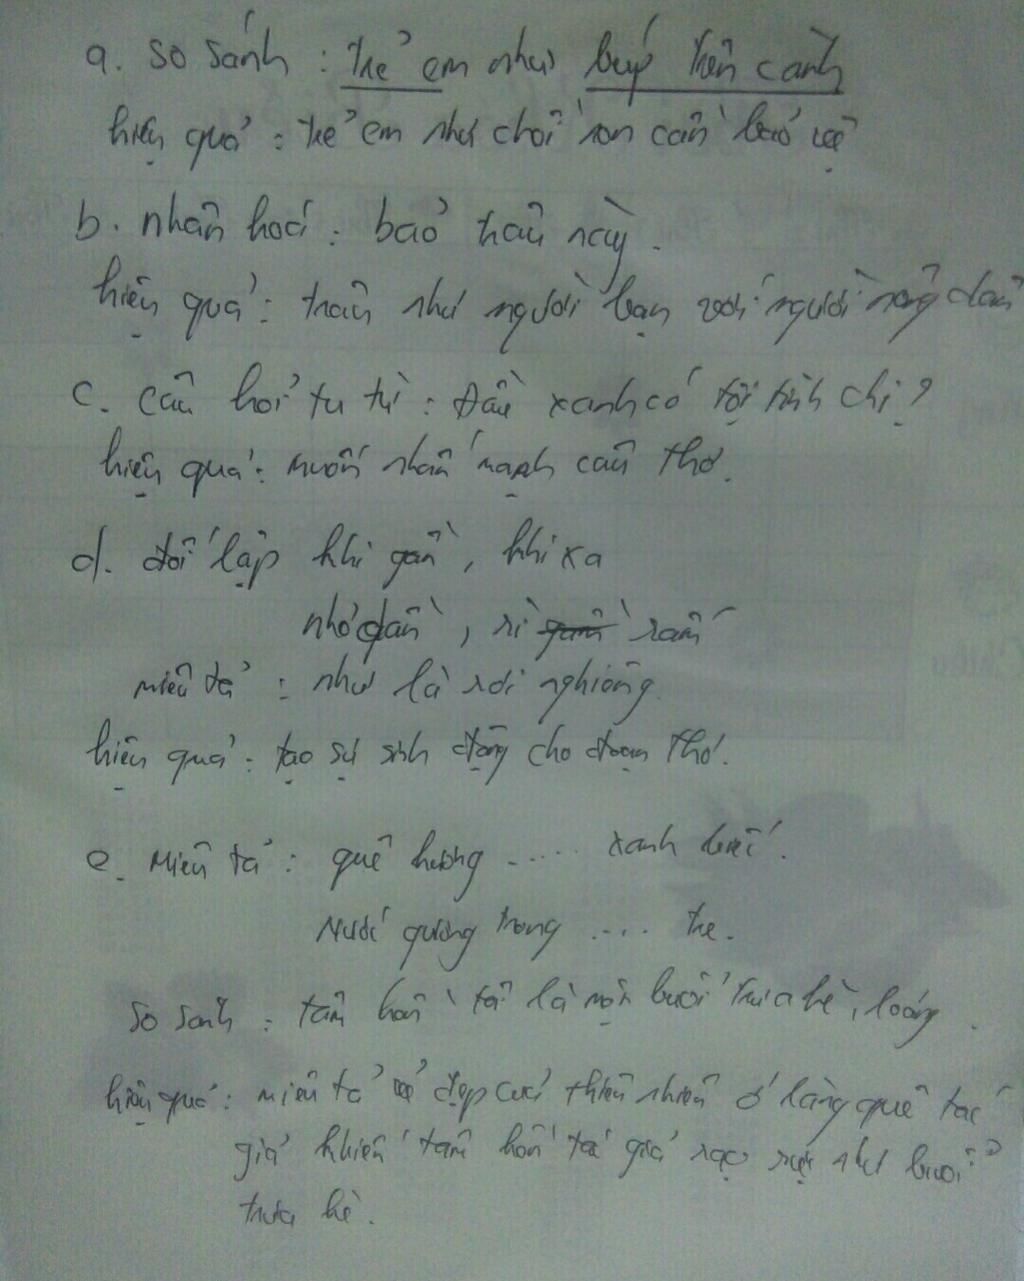 a. so sánh : trẻ em như búp trên cành
hiệu quả : trẻ em như chồi non cần bảo vệ
b. nhân hoá : bảo trâu này.
hiệu quả : trâu như người bạn với người nông dân
c. câu hỏi tu từ : Đầu xanh có tội tình chi ?
hiệu quả : muốn nhấn mạnh câu thơ.
d. đối lập khi gần, khi xa
nhớ dần, rì rầm
miêu tả : như là rơi nghiêng.
hiệu quả : tạo sự sinh động cho đoạn thơ.
e. Miêu tả : quê hương ..... xanh biếc.
Nước gương trong .... tre.
so sánh : tâm hồn tôi là một buổi trưa hè, loáng.
hiệu quả : miêu tả vẻ đẹp của thiên nhiên ở làng quê tác
giả khiến tâm hồn tác giả rạo rực như buổi
trưa hè.